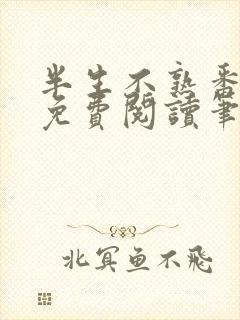 半生不熟番
免費閱讀筆
北冥鱼不飛